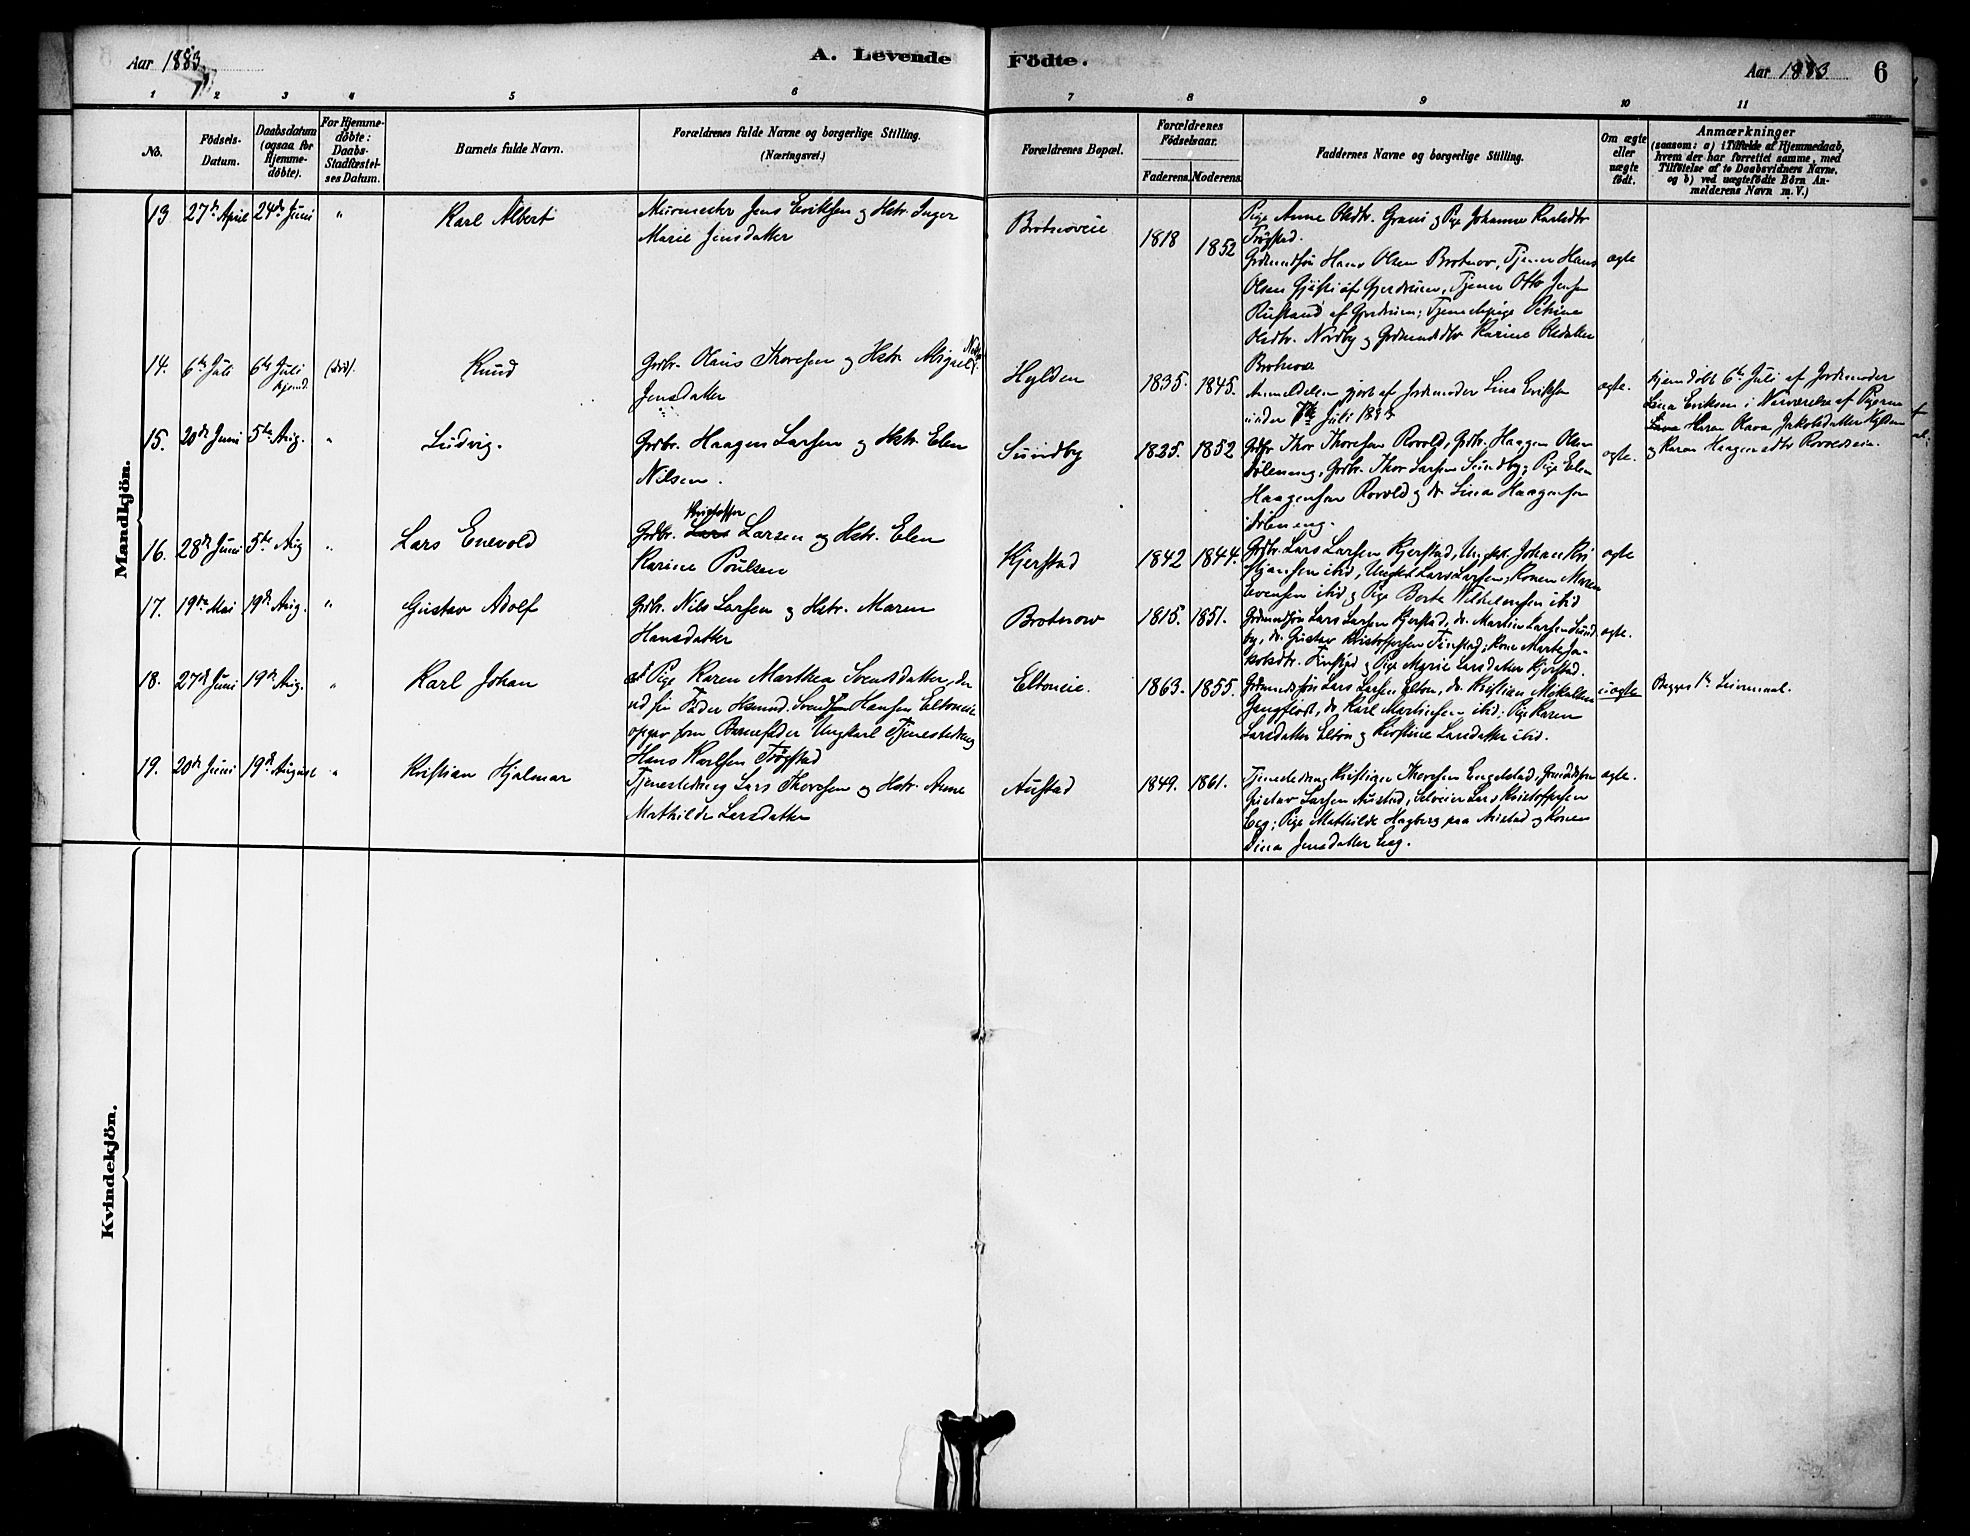 Aar 1883.
A. Levende Födte.
Aar 1883.
6
1 2 3 4 5 6 7 8 9 10 11
No.
Födsels-
Datum.
Daabsdatum
(ogsaa for
Hjemme-
döbte).
For Hjemme-
döbte:
Daabs-
Stadfæstel-
ses Datum.
Barnets fulde Navn.
Forældrenes fulde Navne og borgerlige Stilling.
(Næringsvei.)
Forældrenes Bopæl.
Forældrenes
Födselsaar.
Faderens. Moderens.
Faddernes Navne og borgerlige Stilling.
Om ægte
eller
uægte
födt.
Anmærkninger
(saasom: a) i Tilfælde af Hjemmedaab,
hvem der har forrettet samme, med
Tilföielse af to Daabsvidners Navne,
og b) ved uægtefödte Börn An-
melderens Navn m. V.)
Mandkjön.
13. 27de April 24de Juni "
Karl Albert
Murmester Jens Eriksen og Hstr. Inger
Marie Jensdatter
Brotnoveie
1818 1852
Pige Anne Olsdtr. og Pige Johanne Karlsdtr
Trøgstad.
Grdmandssøn Hans Olsen Brotnov, Tjener Hans
Olsen af Gjerdrum, Tjener Otto Jensen
Rustand af Gjerdrum; Tjenestepige Petrine
Olsdtr. Nordby og Grdmandsdtr Karine Olsdatter
Brotnov
ægte
14. 6te Juli 6te Juli hjemd. (död).
Knud
Grdbr. Olaus Thoresen og Hstr. Abigael
Jensdatter
Hylden
1835. 1845.
Anmeldelsen gjort af Jordmoder Lina Eriksen
under 7de Juli 1883
ægte.
Hjemdöbt 6te Juli af Jordmoder
Lina Eriksen i Nærværelse af Pigerne
Olava Jakobsdatter Hylden
og Karen Haagensdtr
15. 20de Juni 5te Aug. "
Ludvig.
Grdbr. Haagen Larsen og Hstr. Elen
Nilsen.
Sundby
1825. 1852
Grdbr Thor Thoresen Rovold, Grdbr. Haagen Olsen
Döleneng, Grdbr. Thor Larsen Sundby; Pige Elen
Haagensen Rovold og do Lina Haagensen
Döleneng.
ægte.
16. 28de Juni 5te Aug "
Lars Enevold
Kristoffer
Grdbr. Lars Larsen og Hstr. Elen
Karine Poulsen
Kjerstad
1842 1844.
Grdbr. Lars Larsen Kjerstad, Ungk. Johan Kri
stjansen ibid, Ungk Lars Larsen; Konen Maren
ibid og Pige Berte Vilhelmsen ibid
ægte
17. 19de Mai 19de Aug. "
Gustav Adolf
Grdbr. Nils Larsen og Hstr. Maren
Hansdatter
Brotnow
1815. 1851.
Grdmandssøn Lars Larsen Kjerstad, do. Martin Larsen Sund
by, do. Gustav Kristoffersen Finstad; Kone Marte Ja-
kobsdtr. Finstad og Pige Marie Larsdatter Kjerstad.
ægte.
18. 27de Juni 19de Aug. "
Karl Johan
af Pige Karen Marthea Svendsdatter, der
ved sin Fader Husmd. Svend Hansen Eltoneie
opgav som Barnefader Ungkarl Tjenestedreng
Hans Karlsen Trøgstad
Eltoneie.
1863. 1855.
Grdmandssøn Lars Larsen Elton, do. Kristian Mikalsen
do. Karl Martinsen ibid; Pige Karen
Larsdatter Elton og Kirstine Larsdatter ibid.
uægte
Begges 1te Leiermaal.
19. 20de Juni 19de August "
Kristian Hjalmar
Tjenestedreng Lars Thoresen og Hstr. Anne
Mathilde Larsdatter
Austad
1849. 1861.
Tjenestedreng Kristian Thoresen Engelstad, Grmandssøn
Gustav Larsen Austad, Selveier Lars Kristoffersen
Eeg; Pige Mathilde Hagberg paa Austad og Konen
Dina Jensdatter Eeg.
ægte.
Kvindekjön.